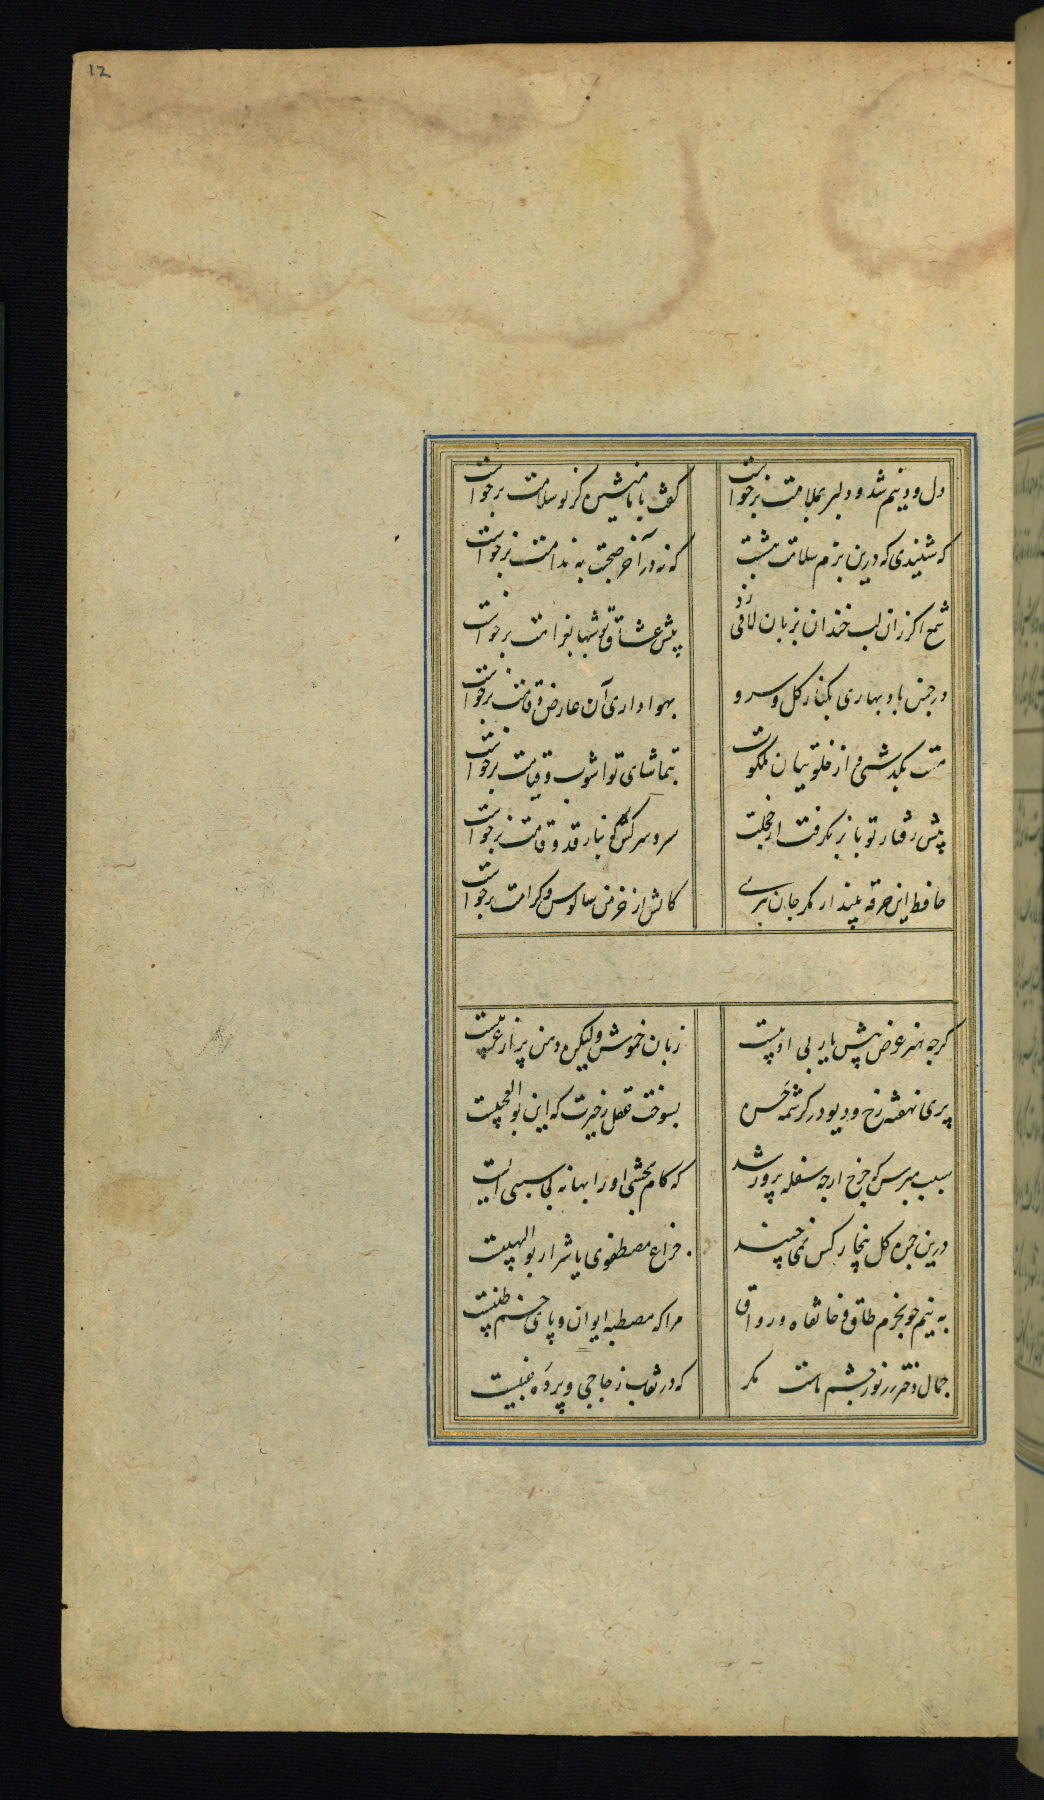 12
دل و دینم شد و دلبر بملامت برخواست	گفت با ما منشین کز تو سلامت برخواست
که شنیدی که درین بزم سلامت بنشست	که نه در آخر صحبت به ندامت برخواست
شمع اکر زان لب خندان بزبان لافی زد	پیش عشاق تو شبها بغرامت برخواست
در چمن باد بهاری بکنار کل و سرو	بهواداری آن عارض و قامت برخواست
مست بکذشتی و از خلوتیان ملکوت	بتماشای تو اشوب و قیامت برخواست
پیش رفتار تو پا بر نکرفت از خجلت	سرو سرکش که بناز قد و قامت برخواست
حافظ این خرقه بینداز مکر جان ببری	کاتش از خرمن سالوس و کرامت برخواست
کرچه هنر عرض پیش یار بی ادبیست	زبان خموش ولیکن دهن پر از عربیست
پری نهفته رخ و دیو در کرشمه حسن	بسوخت عقل ز حیرت که این چه بوالعجبیست
سبب مپرس که چرخ از چه سفله پرور شد	که کام بخشی او را بهانه بی سببی است
درین چمن کل بیخار کس نمی چیند	چراغ مصطفوی با شرار بولهبیست
به نیم جو نخرم طاق و خانقاه و رواق	مرا که مصطبه ایوان و پای خم طنبیست
جمال دختر رز نور چشم ماست مکر	که در نقاب زجاجی و پرده عنبیست